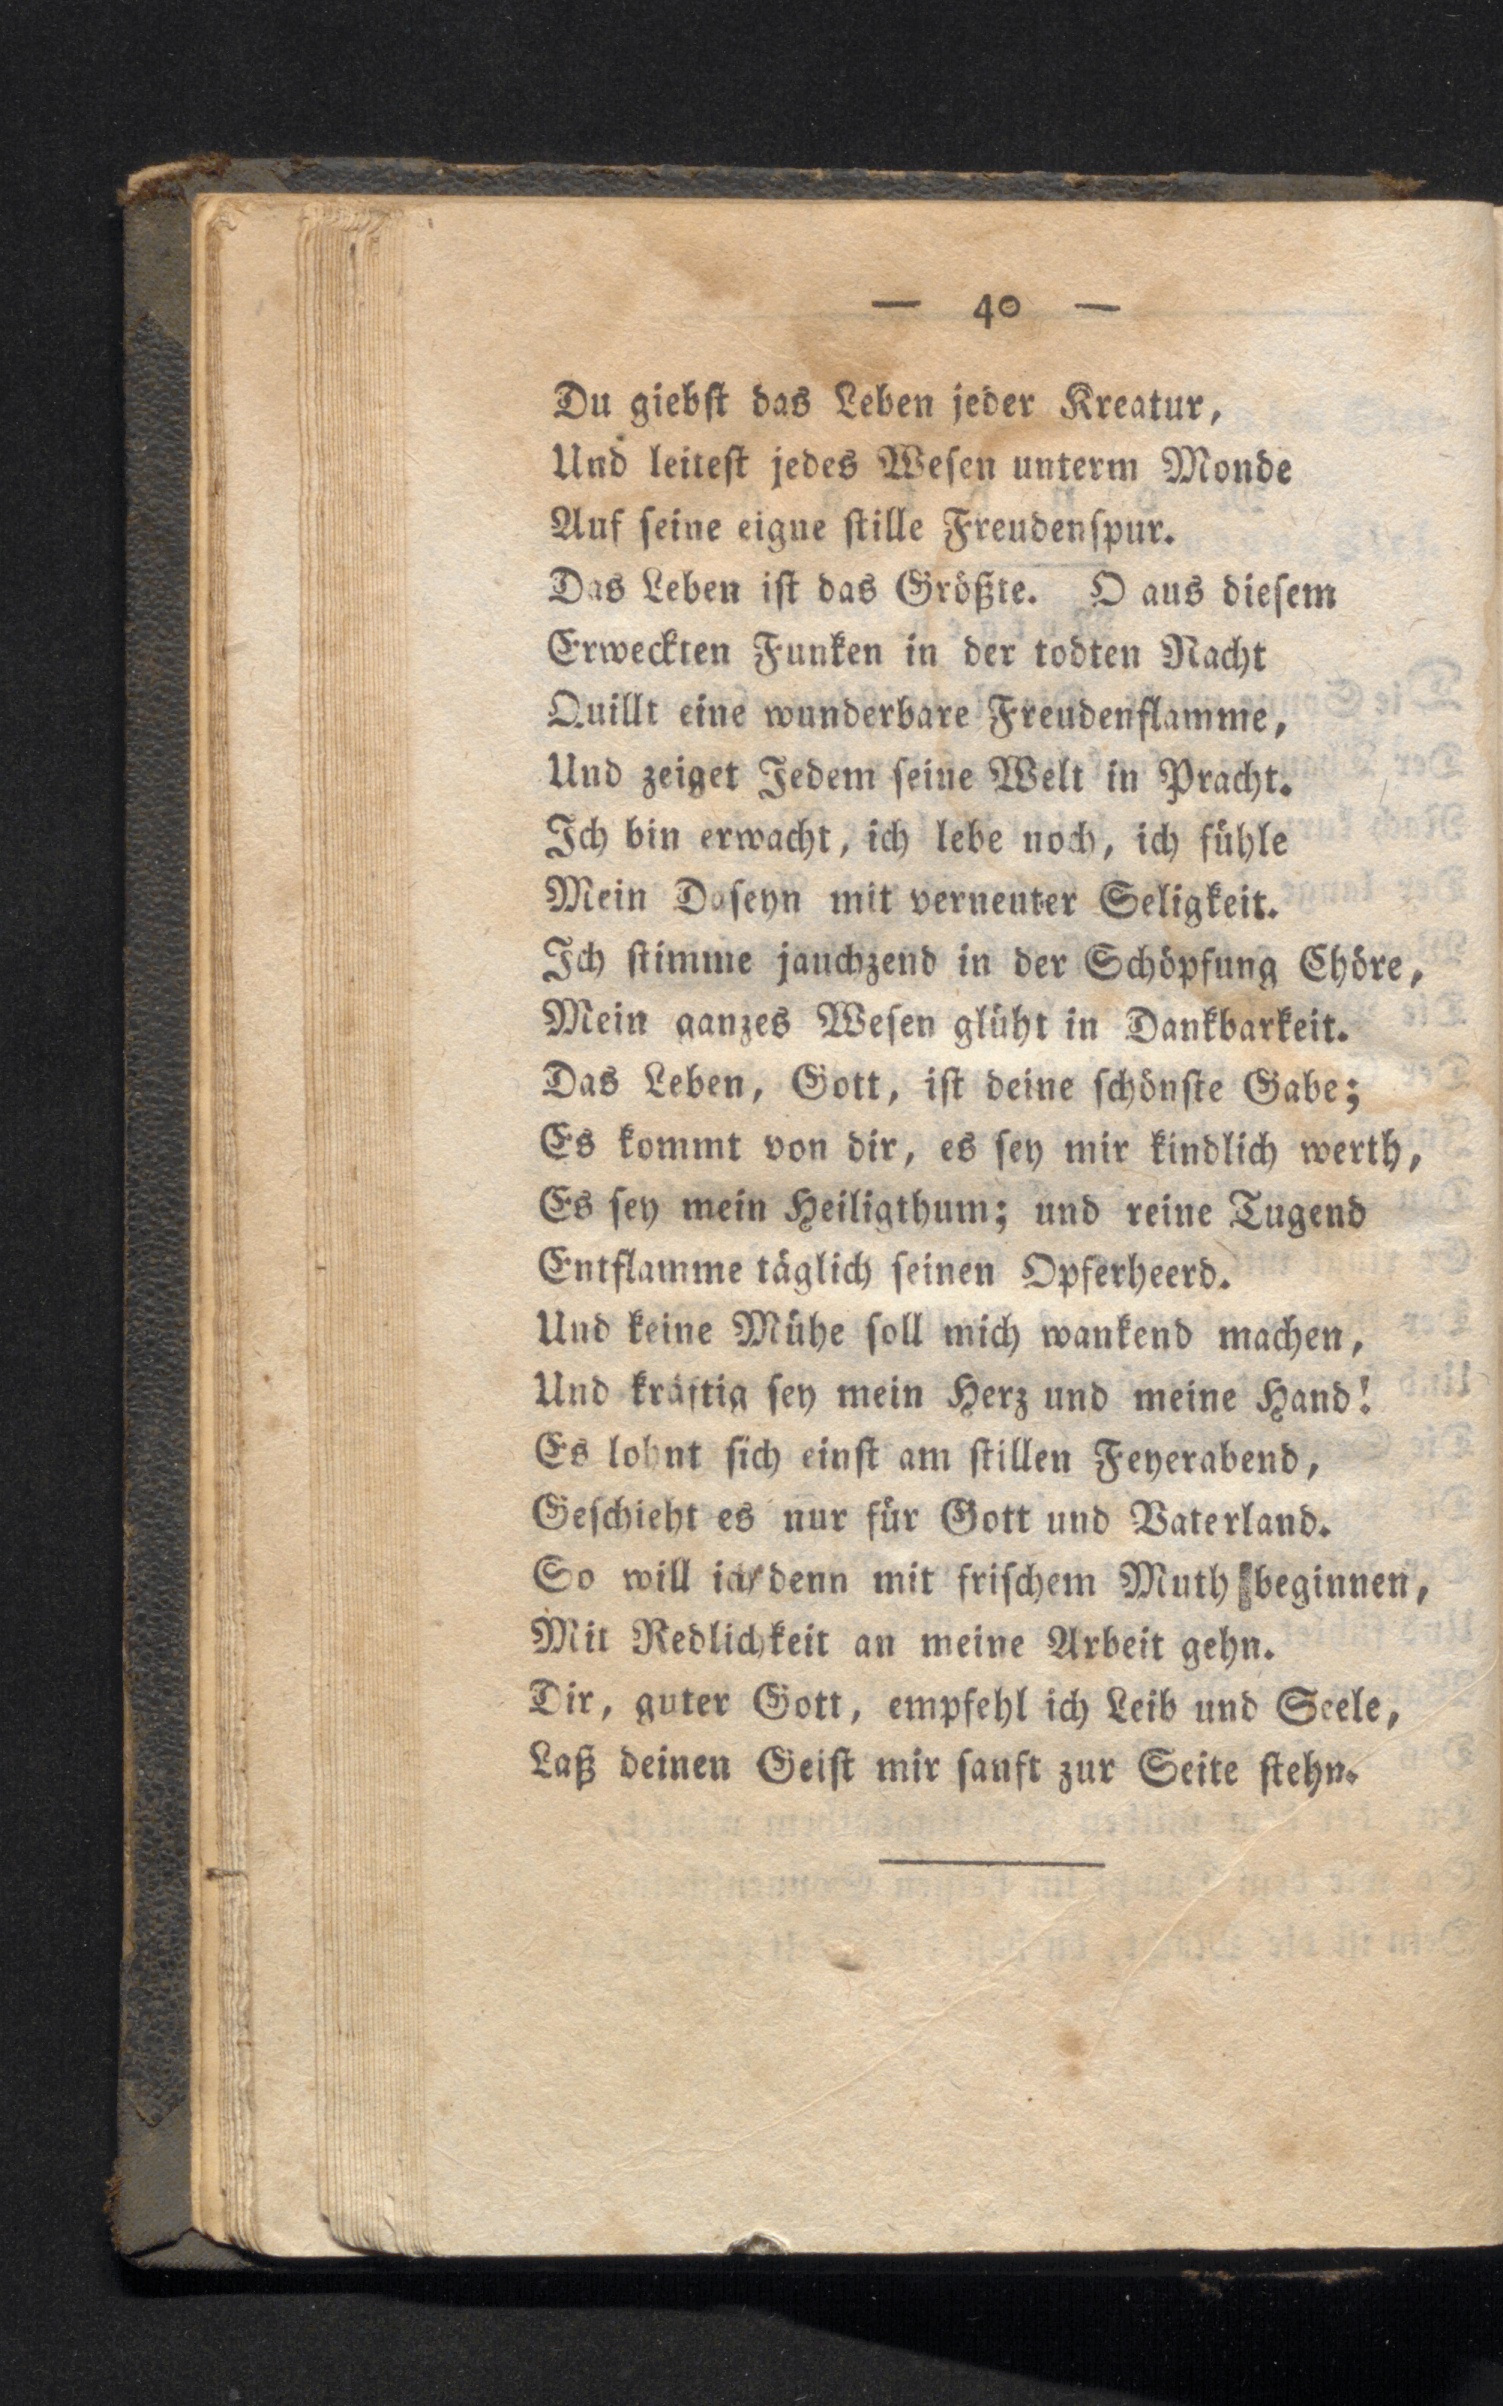 — 40 —
Du giebst das Leben jeder Kreatur,
Und leitest jedes Wesen unterm Monde
Auf seine eigne stille Freudenspur.
Das Leben ist das Größte. O aus diesem
Erweckten Funken in der todten Nacht
Quillt eine wunderbare Freudenflamme,
Und zeiget Jedem seine Welt in Pracht.
Ich bin erwacht, ich lebe noch, ich fühle
Mein Daseyn mit verneuter Seligkeit.
Ich stimme jauchzend in der Schöpfung Chöre,
Mein ganzes Wesen glüht in Dankbarkeit.
Das Leben, Gott, ist deine schönste Gabe;
Es kommt von dir, es sey mir kindlich werth,
Es sey mein Heiligthum; und reine Tugend
Entflamme täglich seinen Opferheerd.
Und keine Mühe soll mich wankend machen,
Und kräftig sey mein Herz und meine Hand!
Es lohnt sich einst am stillen Feyerabend,
Geschieht es nur für Gott und Vaterland.
So will ich denn mit frischem Muth beginnen,
Mit Redlichkeit an meine Arbeit gehn.
Dir, guter Gott, empfehl ich Leib und Seele,
Laß deinen Geist mir sanft zur Seite stehn.